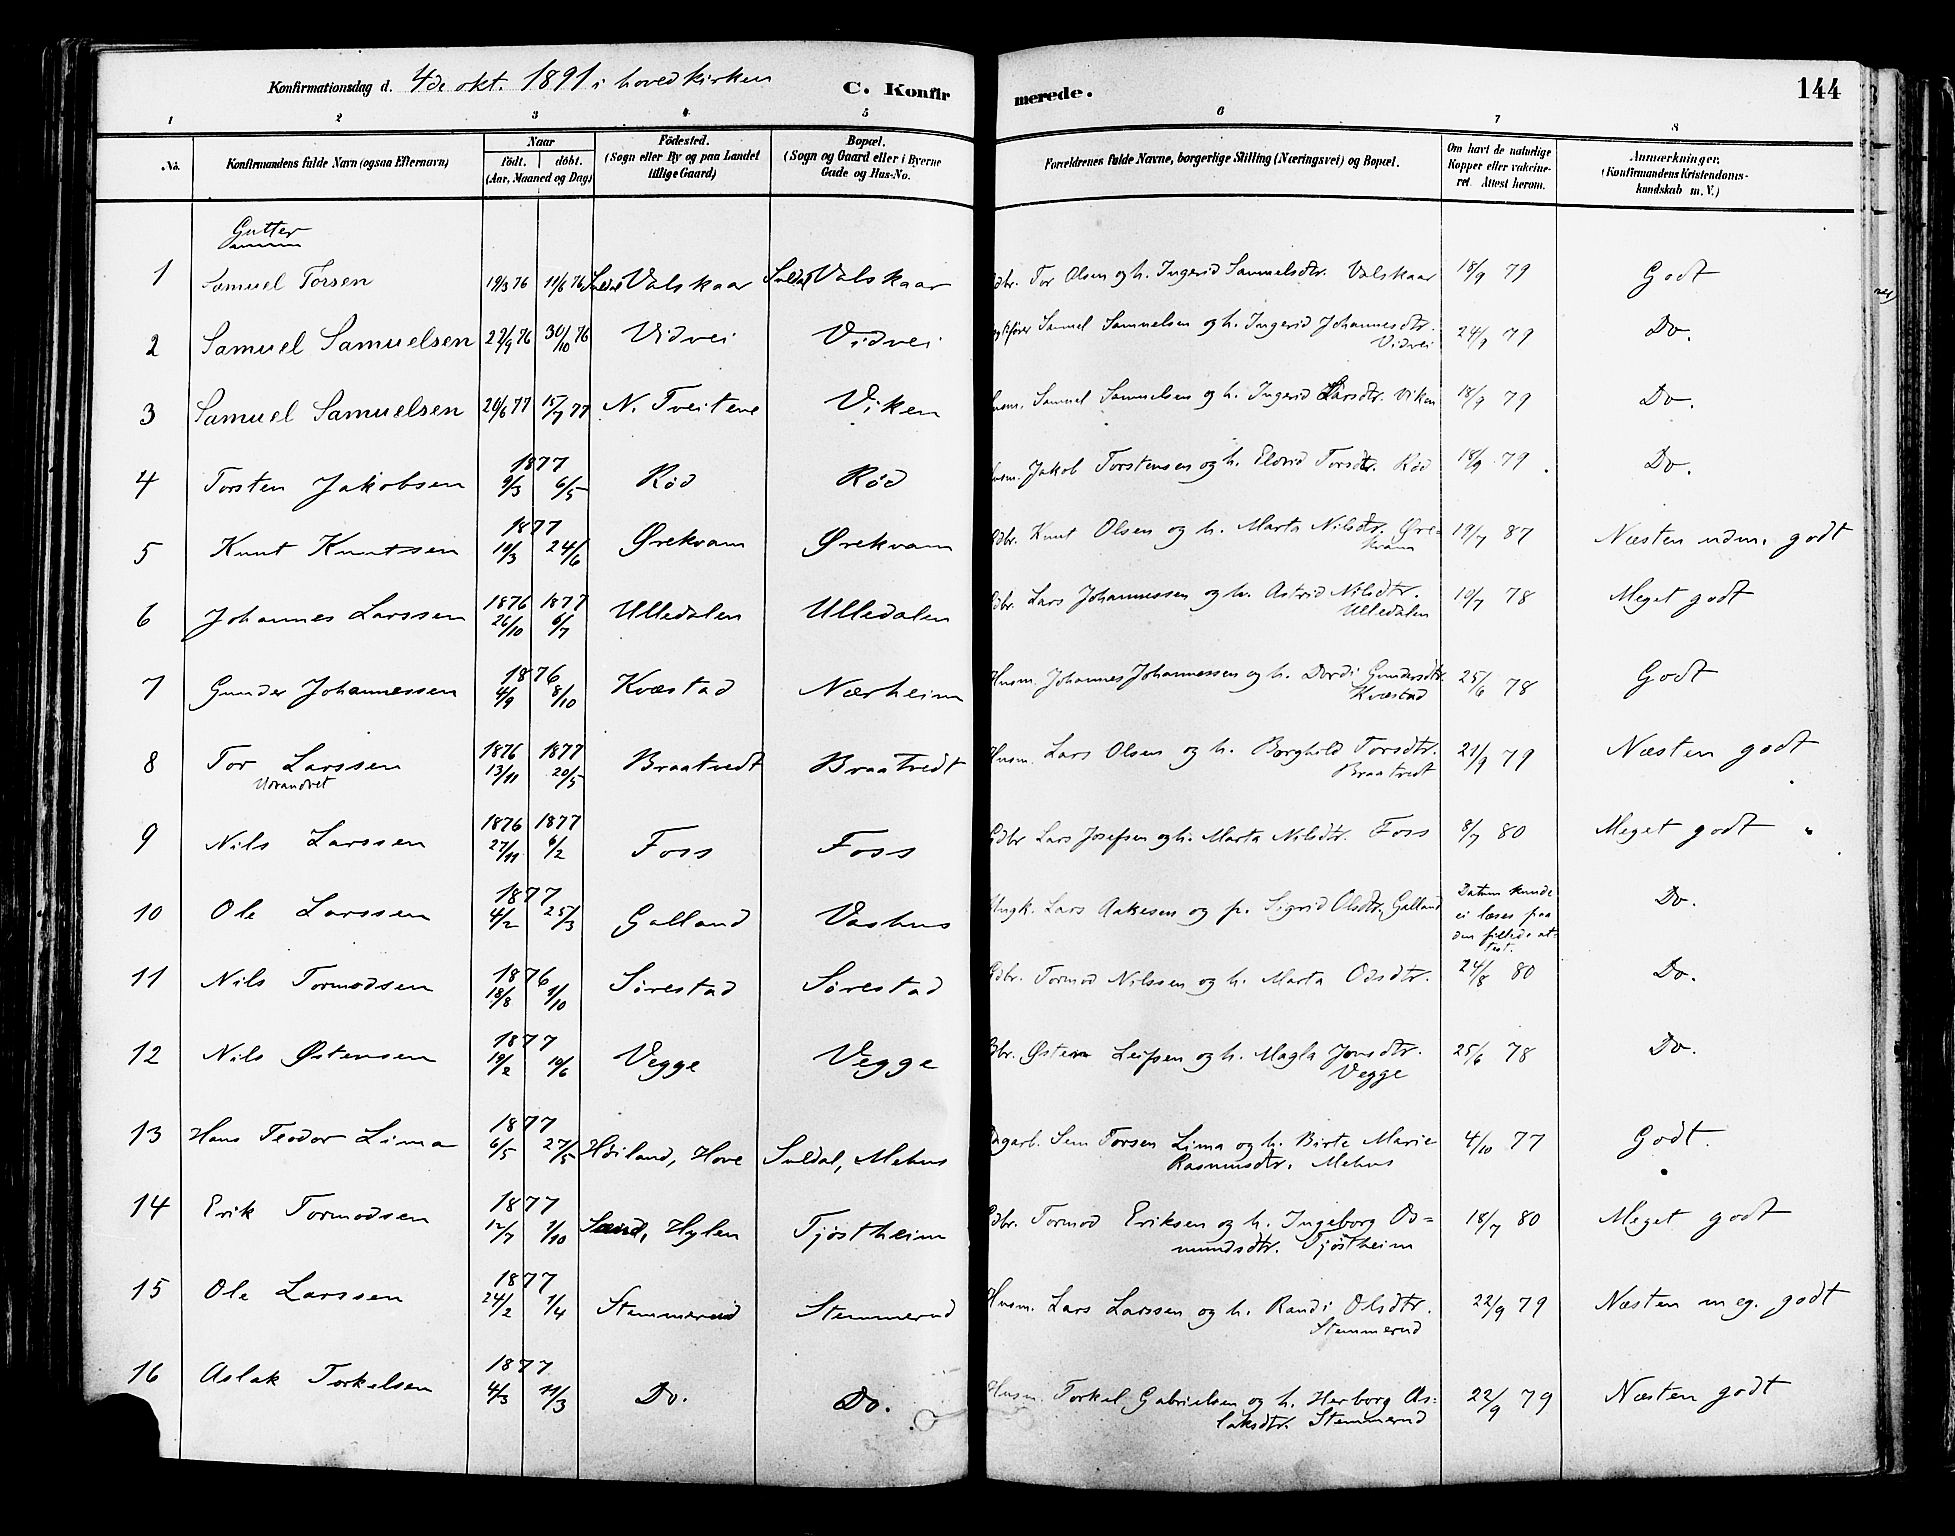 Konfirmationsdag d. 4de okt. 1891 i hovedkirken C. Konfirmerede. 144
1 2 3 4 5 6 7 8
No. Konfirmandens fulde Navn (ogsaa Efternavn) Naar født. døbt. (Aar, Maaned og Dag) Fødested. (Sogn eller By og paa Landet tillige Gaard) Bopæl. (Sogn og Gaard eller i Byerne Gade og Hus-No. Forældrenes fulde Navne, borgerlige Stilling (Næringsvei) og Bopæl. Om havt de naturlige Kopper eller vakcineret. Attest herom. Anmærkninger. (Konfirmandens Kristendomskundskab m. V.)
Gutter
1 Samuel Torsen 19/3 76 11/6 76 Suldal Valskaar Suldal Valskaar Gdbr. Tor Olsen og h. Ingerid Samuelsdtr. Valskaar 18/9 79 Godt
2 Samuel Samuelsen 22/9 76 30/10 76 Vidvei Vidvei Samuel Samuelsen og h. Ingerid Johannesdtr. Vidvei 24/9 79 Do.
3 Samuel Samuelsen 20/6 77 15/7 77 N. Tveitene Viken Husm. Samuel Samuelsen og h. Ingerid Larsdtr. Viken 18/9 79 Do.
4 Torsten Jakobsen 1877 9/3 6/5 Rød Rød Husm. Jakob Torstensen og h. Eldrid Torsdtr. Rød 18/9 79 Do.
5 Knut Knutsen 1877 19/3 24/6 Ørekvam Ørekvam Gdbr. Knut Olsen og h. Marta Nilsdtr. Ørekvam 19/7 87 Næsten udm. godt
6 Johannes Larssen 1876 26/10 1877 6/7 Ulledalen Ulledalen Gdbr. Lars Johannessen og h. Astrid Nilsdtr. Ulledalen 10/7 78 Meget godt
7 Gunder Johannessen 1876 4/9 8/10 Kvæstad Nærheim Husm. Johannes Johannessen og h. Dordi Gundersdtr. Kvæstad 25/6 78 Godt
8 Tor Larssen 1876 13/11 1877 20/5 Braatvedt Braatvedt Husm. Lars Olsen og h. Borghild Torsdtr. Braatvedt 21/9 79 Næsten godt
9 Nils Larssen 1876 27/11 1877 6/2 Foss Foss Gdbr Lars Josefsen og h. Marta Nilsdtr. Foss 8/7 80 Meget godt
10 Ole Larssen 1877 4/2 25/3 Galland Vashus Ungk. Lars Aakesen og p. Sigrid Olsdtr, Galland Datum kunde ei læses paa den attest. Do.
11 Nils Tormodsen 1876 18/8 1/10 Sørestad Sørestad Gdbr. Tormod Nilssen og h. Marta Odsdtr. 24/8 80 Do.
12 Nils Østensen 1877 19/2 10/6 Vegge Vegge Gbr. Østen Leifsen og h. Magla Jonsdtr. Vegge 25/6 78 Do.
13 Hans Teodor Lima 1877 6/5 27/5 Høiland, Hove Suldal, Mehus Sem Torsen Lima og h. Birte Marie Rasmusdtr. Mehus 4/10 77 Godt.
14 Erik Tormodsen 1877 12/7 7/10 Sand, Hylen Tjøstheim Gdbr. Tormod Eriksen og h. Ingeborg Osmundsdtr. Tjøstheim 18/7 80 Meget godt
15 Ole Larssen 1877 24/2 1/4 Stemmerud Stemmerud Husm. Lars Larssen og h. Randi Olsdtr. Stemmerud 22/9 79 Næsten meg. godt
16 Aslak Torkelsen 1877 4/3 11/3 Do. Do. Husm. Torkel Gabrielsen og h. Herborg Aslaksdtr. Stemmerud 22/9 79 Næsten godt